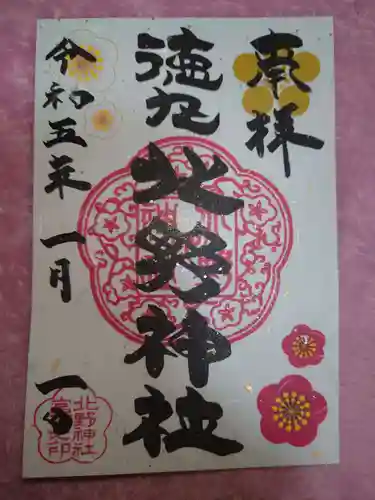 奉拝
徳丸
北野神社
令和五年 一月 一日
北野神社